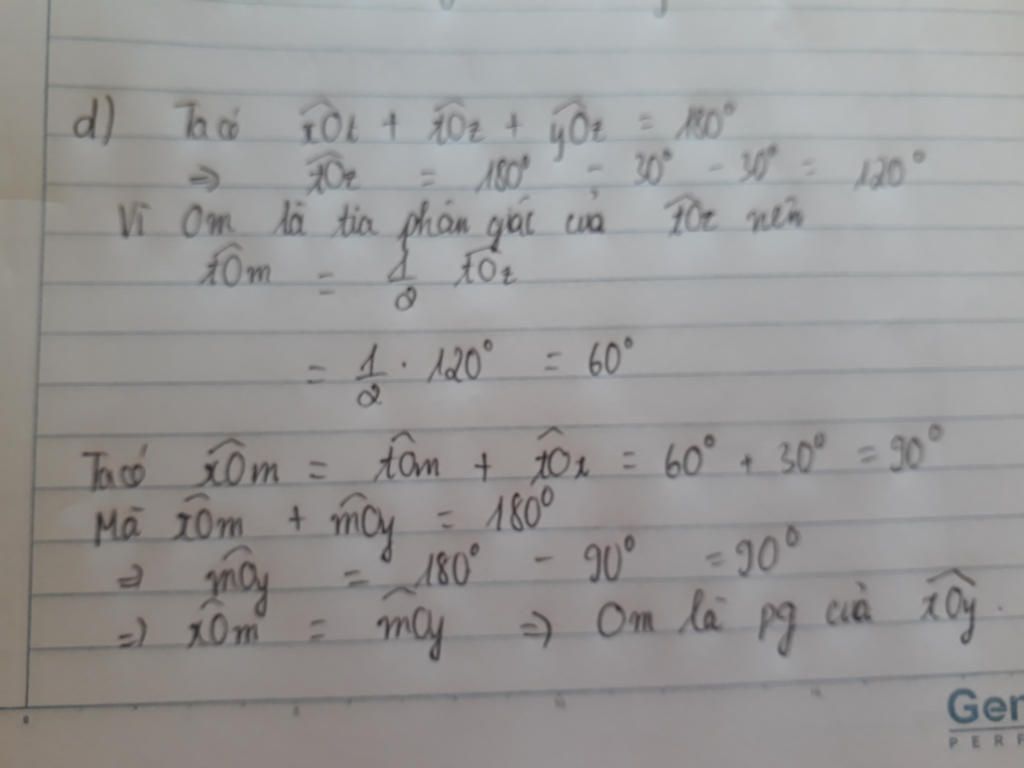 d) Ta có x̂Ot + t̂Oz + ŷOz = 180°
⇒ t̂Oz = 180° - 30° - 30° = 120°
Vì Om là tia phân giác của t̂Oz nên
t̂Om = 1/2 t̂Oz
= 1/2 . 120° = 60°
Ta có x̂Om = t̂Om + t̂Ox = 60° + 30° = 90°
Mà x̂Om + m̂Oy = 180°
⇒ m̂Oy = 180° - 90° = 90°
⇒ x̂Om = m̂Oy ⇒ Om là pg của x̂Oy.
Ger
PERF